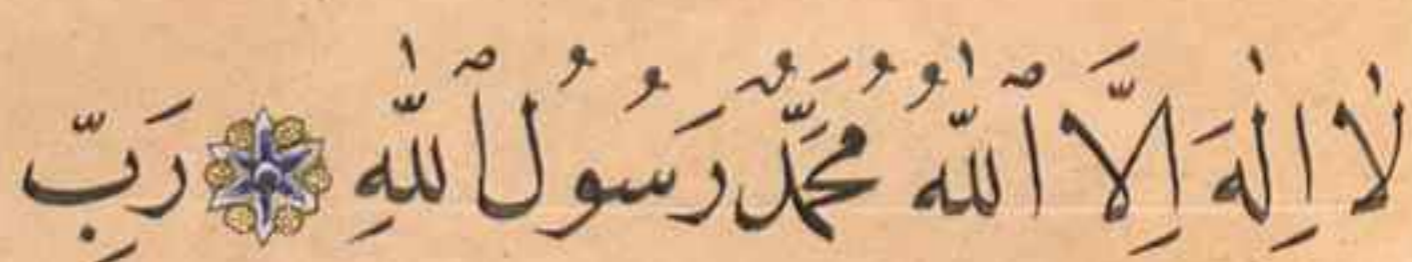 لَٰا اِلٰهَ اِلَّا ٱللّٰهُ مُحَمَّدٌ رَسُولُ ٱللّٰهِ رَبِّ